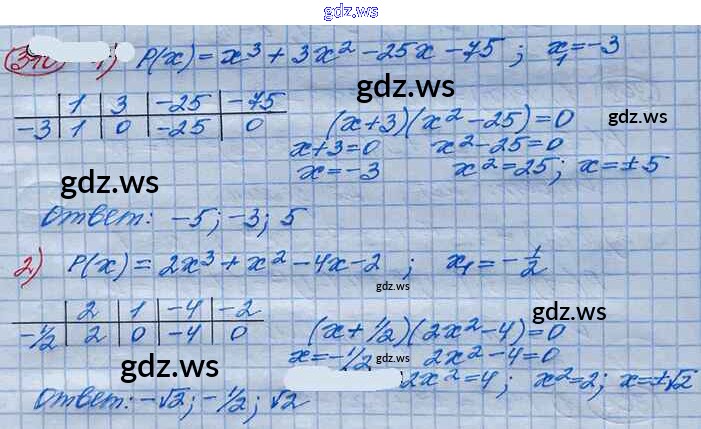 gdz.ws
1) P(x) = x³ + 3x² - 25x - 75 ; x₁ = -3
gdz.ws
1 3 -25 -75
-3 1 0 -25 0
gdz.ws
(x+3)(x² - 25) = 0
x+3=0 x² - 25 = 0
x = -3 x² = 25; x = ±5
gdz.ws
Ответ: -5; -3; 5
2) P(x) = 2x³ + x² - 4x - 2 ; x₁ = -1/2
gdz.ws
2 1 -4 -2
-1/2 2 0 -4 0
gdz.ws
(x + 1/2)(2x² - 4) = 0
x = -1/2 gdz.ws 2x² - 4 = 0
gdz.ws
2x² = 4; x² = 2; x = ±√2
Ответ: -√2; -1/2; √2